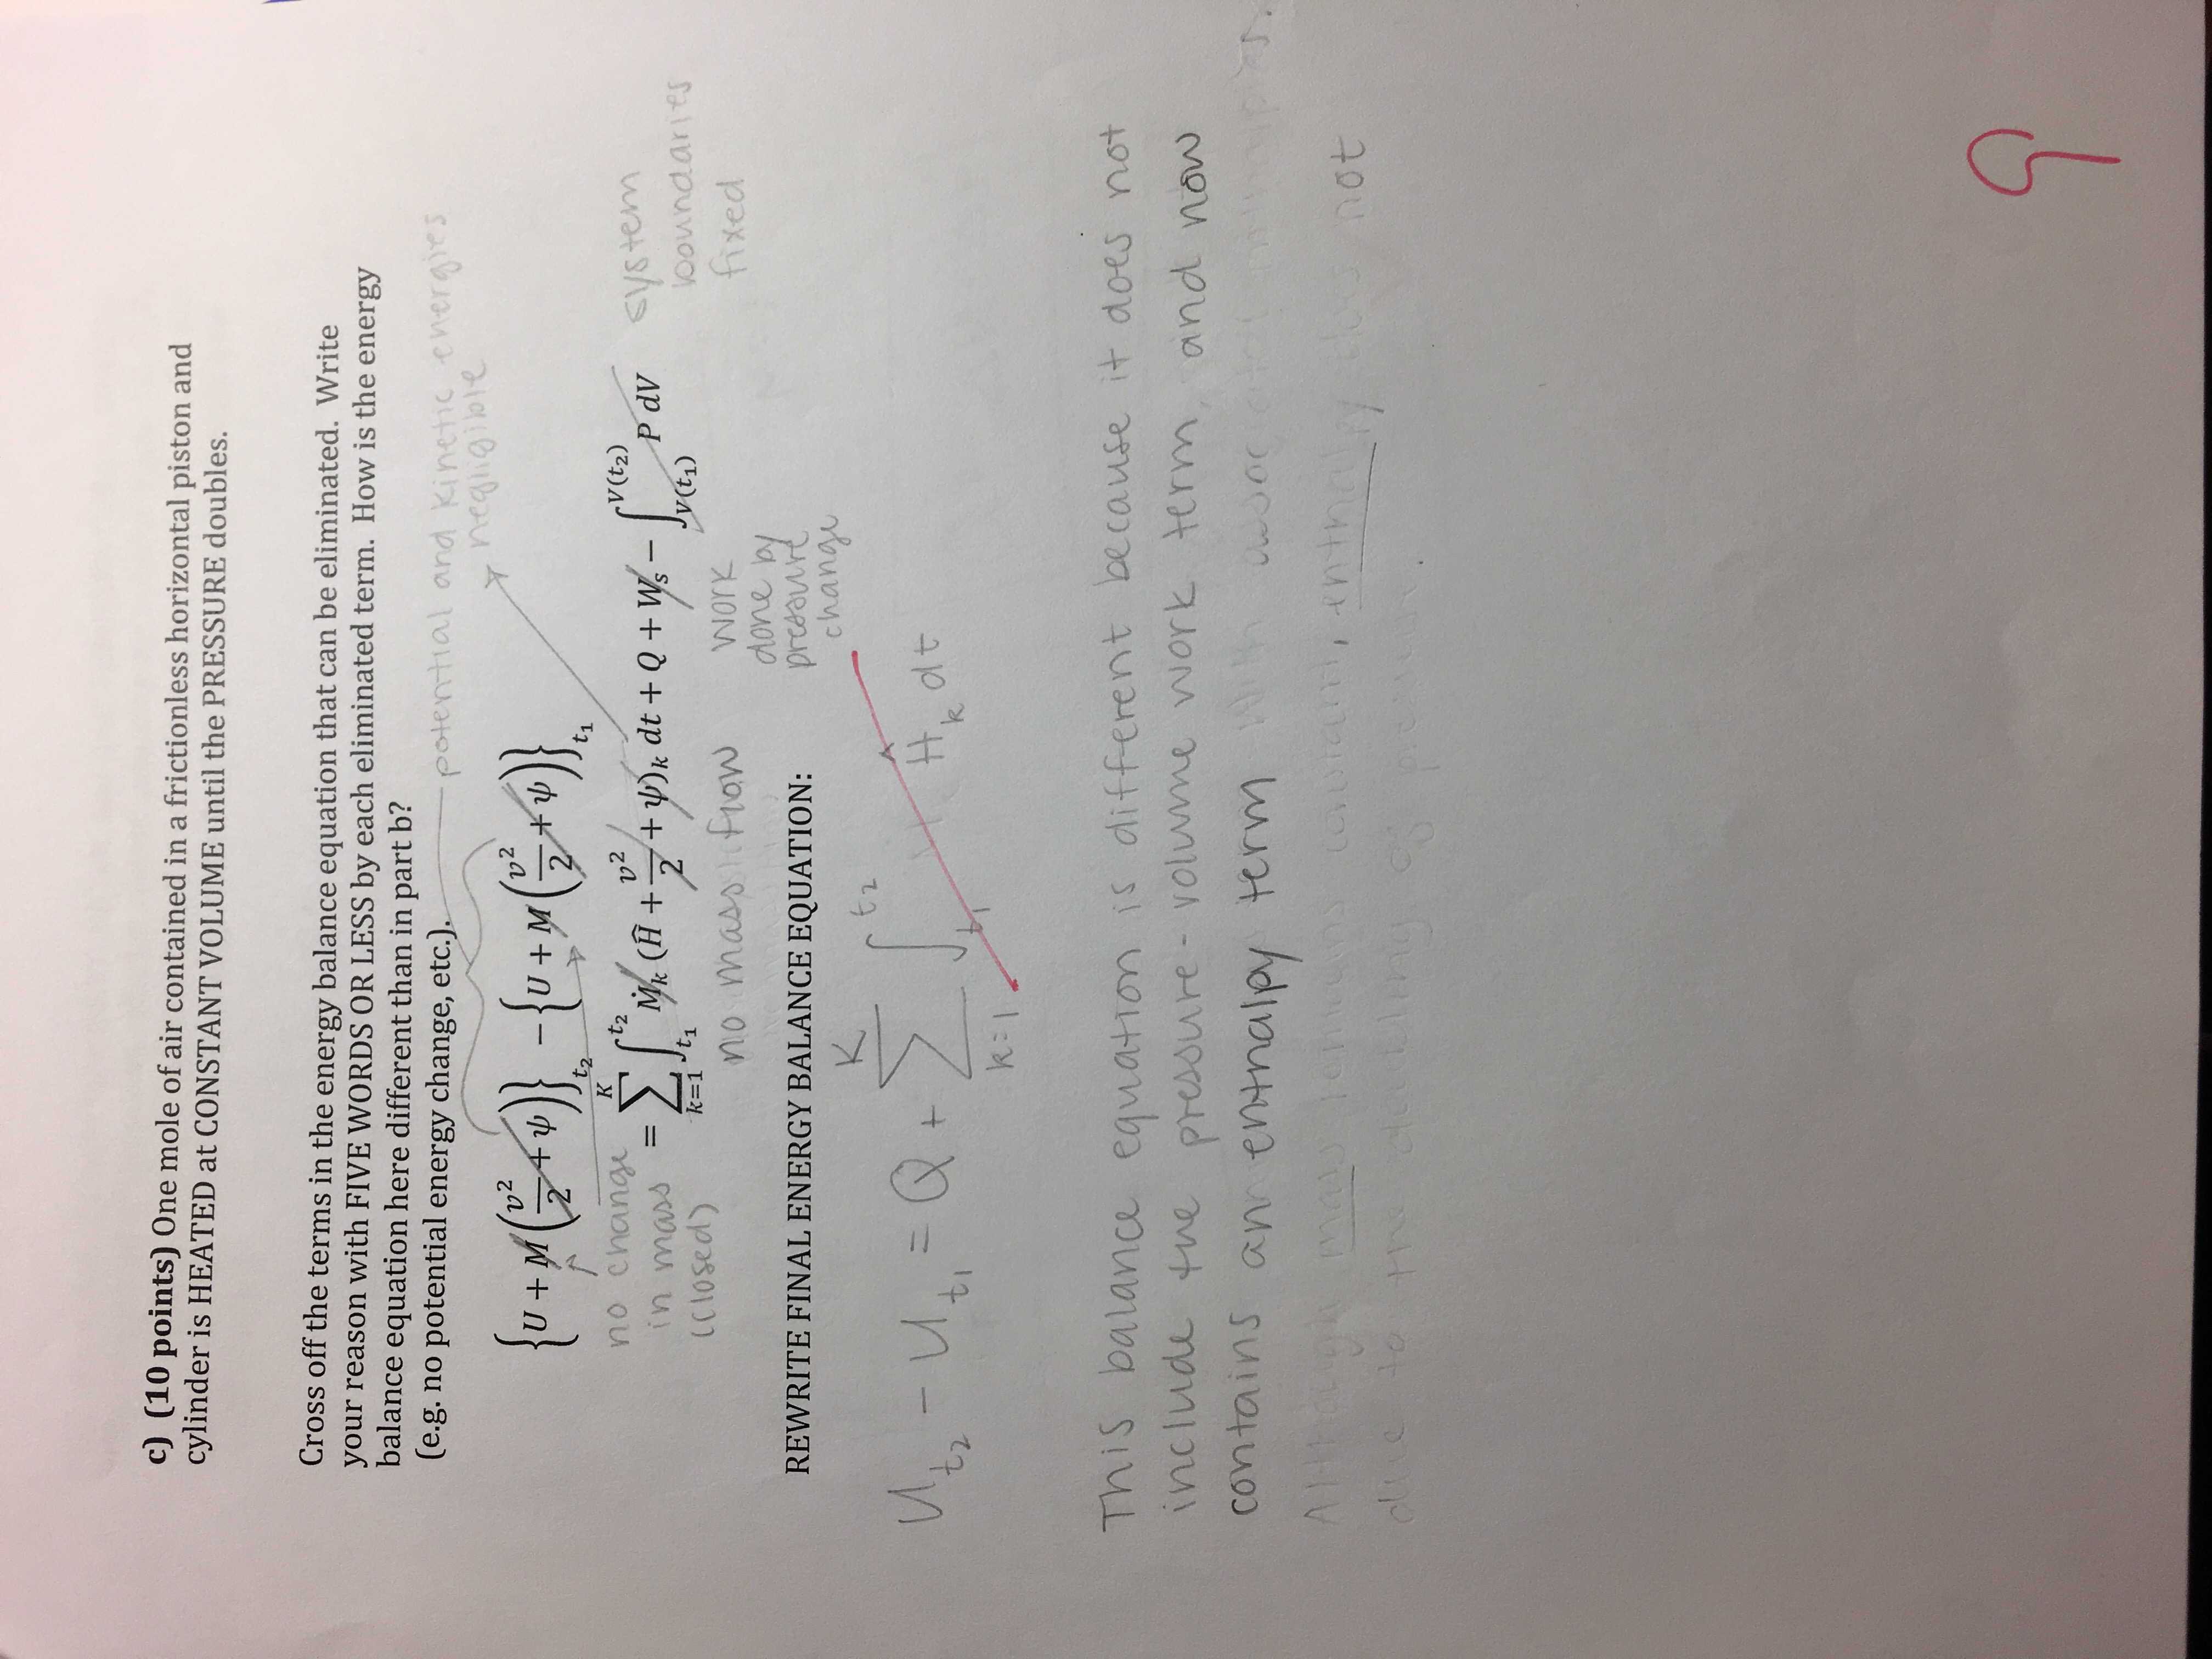 c) (10 points) One mole of air contained in a frictionless horizontal piston and
cylinder is HEATED at CONSTANT VOLUME until the PRESSURE doubles.
Cross off the terms in the energy balance equation that can be eliminated. Write
your reason with FIVE WORDS OR LESS by each eliminated term. How is the energy
balance equation here different than in part b?
(e.g. no potential energy change, etc.).
potential and kinetic energies
negligible
{U + M(v²/2 + ψ)}t₂ − {U + M(v²/2 + ψ)}t₁
no change
in mass
(closed)
= ∑ₖ₌₁ᴷ ∫ₜ₁ᵗ² Ṁₖ (Ĥ + v²/2 + ψ)ₖ dt + Q + Wₛ − ∫V(t₁)V(t₂) P dV
system
boundaries
fixed
no mass flow
work
done by
pressure
change
REWRITE FINAL ENERGY BALANCE EQUATION:
Ut₂ − Ut₁ = Q + ∑ₖ₌₁ᴷ ∫ₜ₁ᵗ² Ĥₖ dt
This balance equation is different because it does not
include the pressure-volume work term, and now
contains an enthalpy term with
Although mass remains constant, enthalpy does not
due to the doubling of pressure.
9